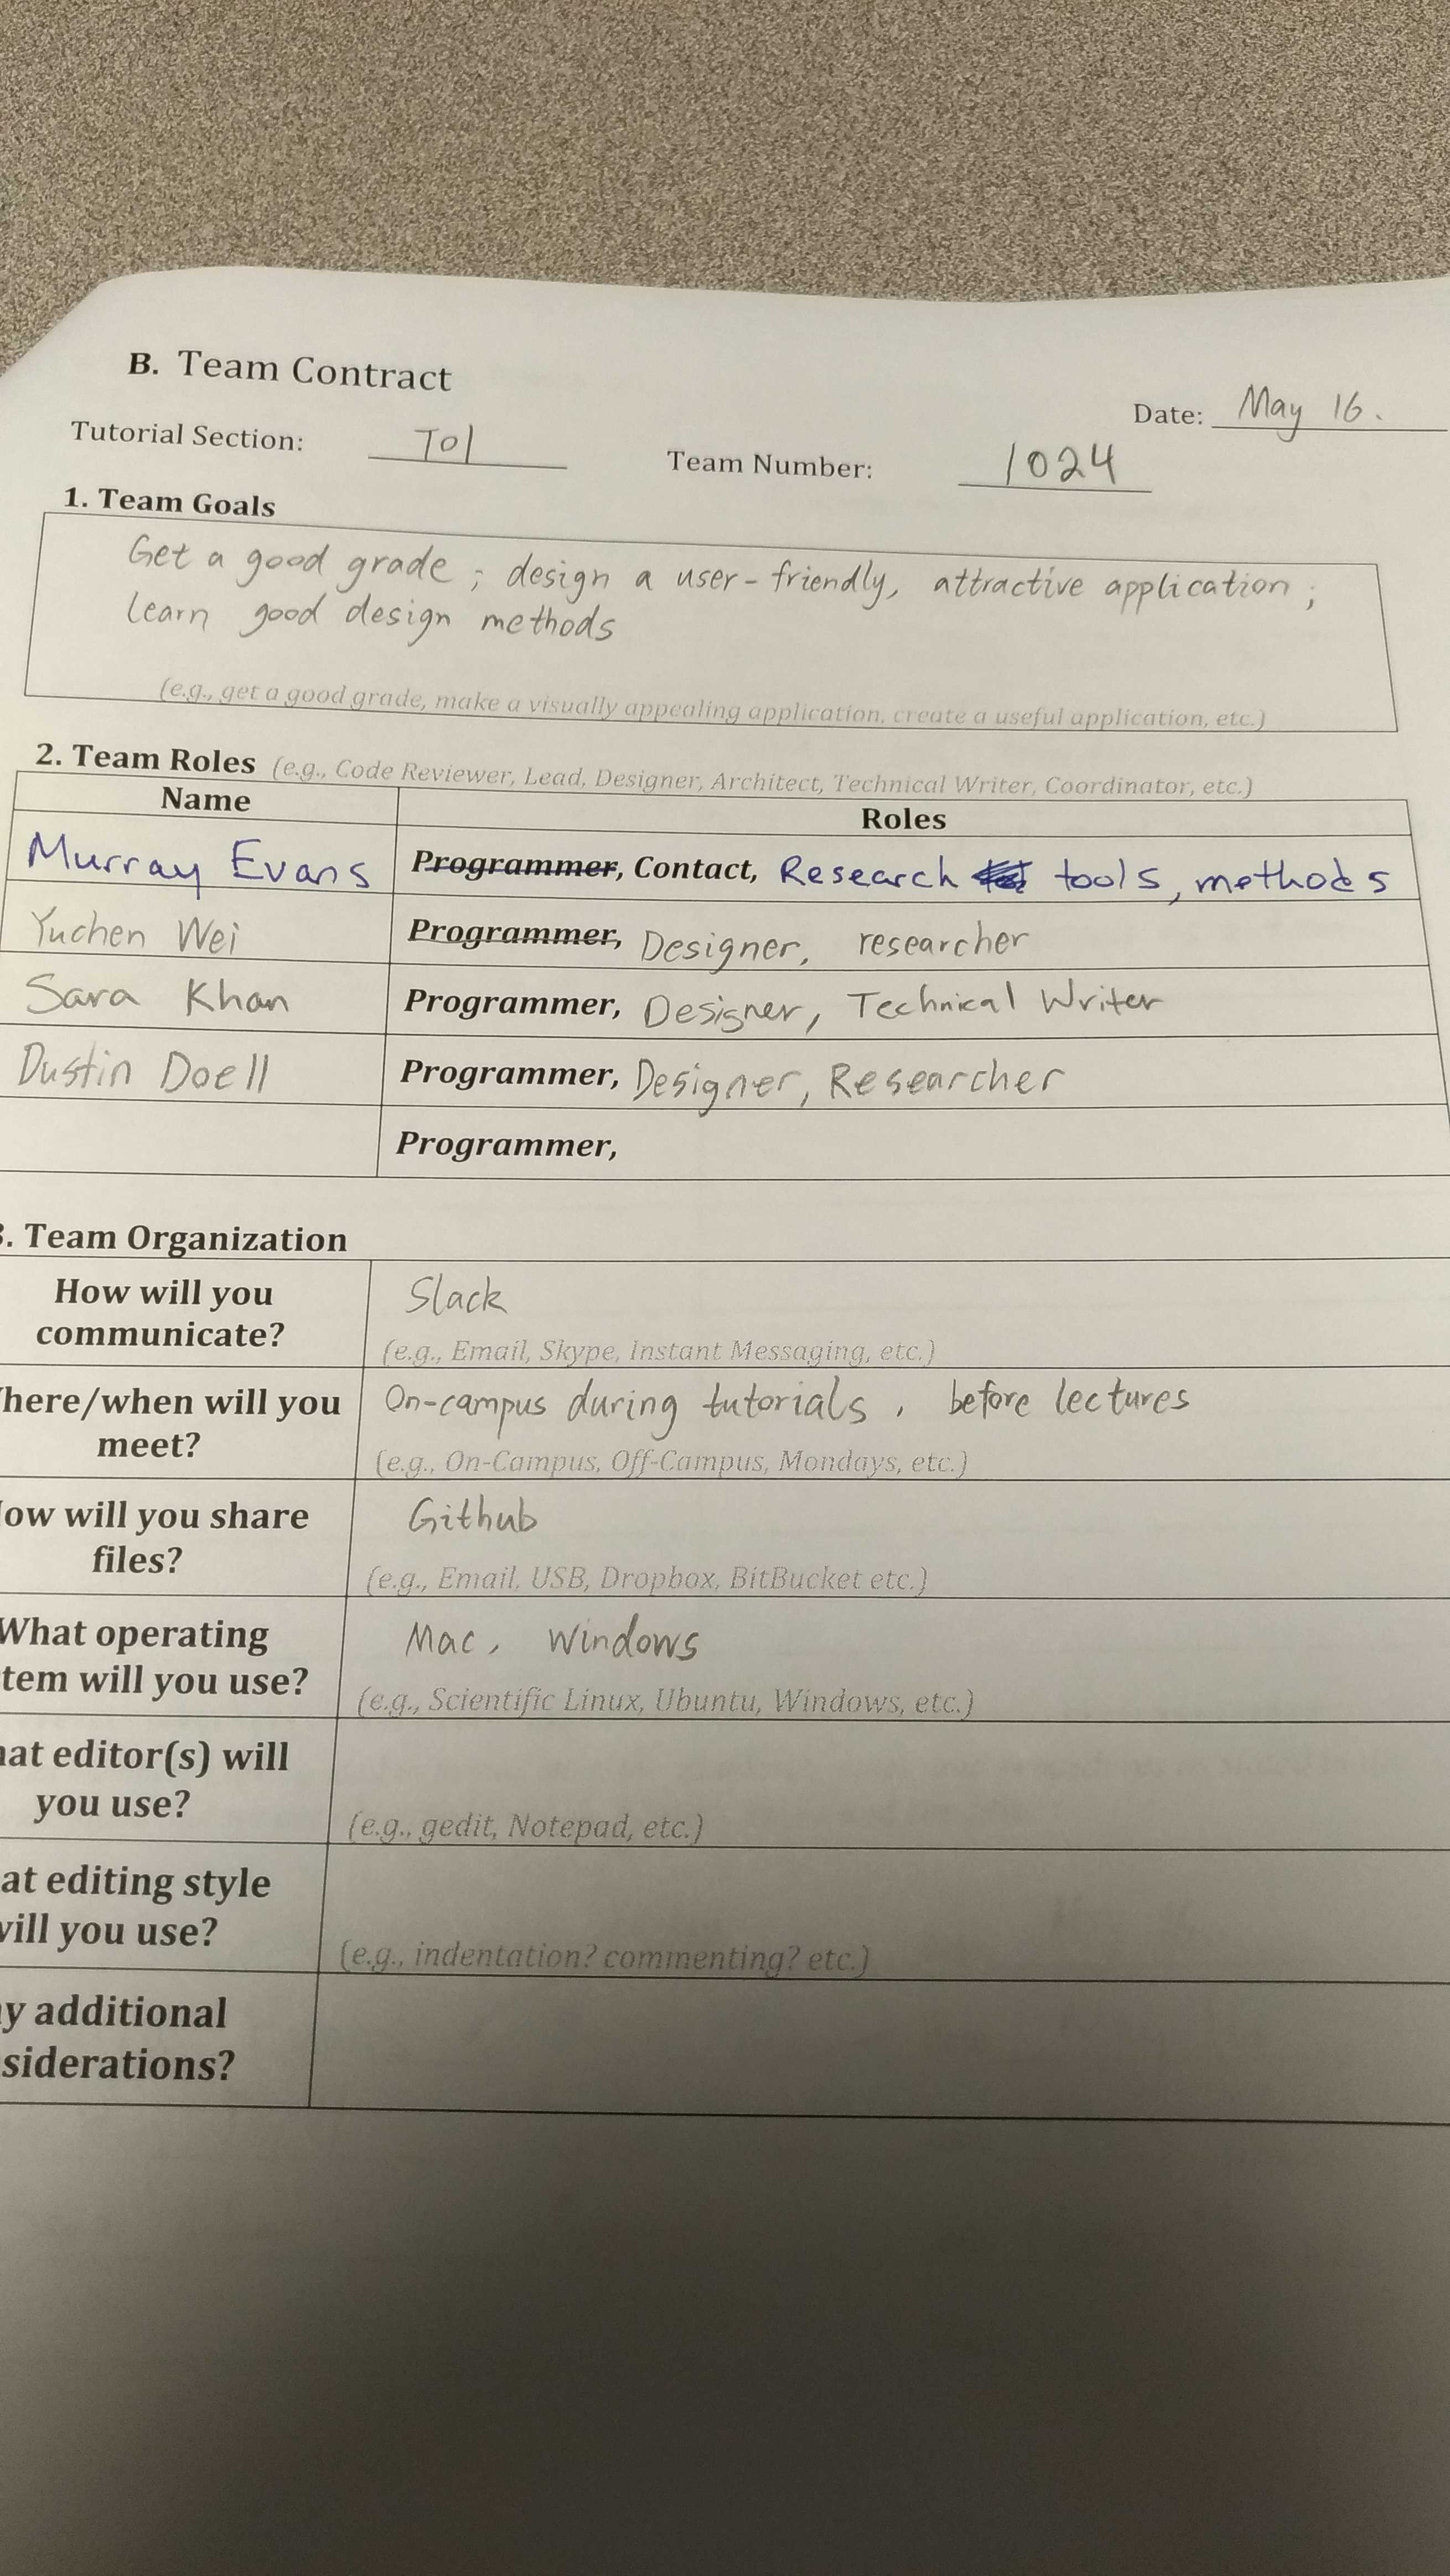 B. Team Contract
Date: May 16.
Tutorial Section: T01
Team Number: 1024
1. Team Goals
Get a good grade ; design a user-friendly, attractive application ;
learn good design methods
(e.g., get a good grade, make a visually appealing application, create a useful application, etc.)
2. Team Roles (e.g., Code Reviewer, Lead, Designer, Architect, Technical Writer, Coordinator, etc.)
Name Roles
Murray Evans Programmer, Contact, Research tools, methods
Yuchen Wei Programmer, Designer, researcher
Sara Khan Programmer, Designer, Technical Writer
Dustin Doell Programmer, Designer, Researcher
Programmer,
3. Team Organization
How will you
communicate?
Slack
(e.g., Email, Skype, Instant Messaging, etc.)
here/when will you
meet?
On-campus during tutorials, before lectures
(e.g., On-Campus, Off-Campus, Mondays, etc.)
ow will you share
files?
Github
(e.g., Email, USB, Dropbox, BitBucket etc.)
What operating
tem will you use?
Mac, Windows
(e.g., Scientific Linux, Ubuntu, Windows, etc.)
at editor(s) will
you use?
(e.g., gedit, Notepad, etc.)
at editing style
will you use?
(e.g., indentation? commenting? etc.)
y additional
siderations?